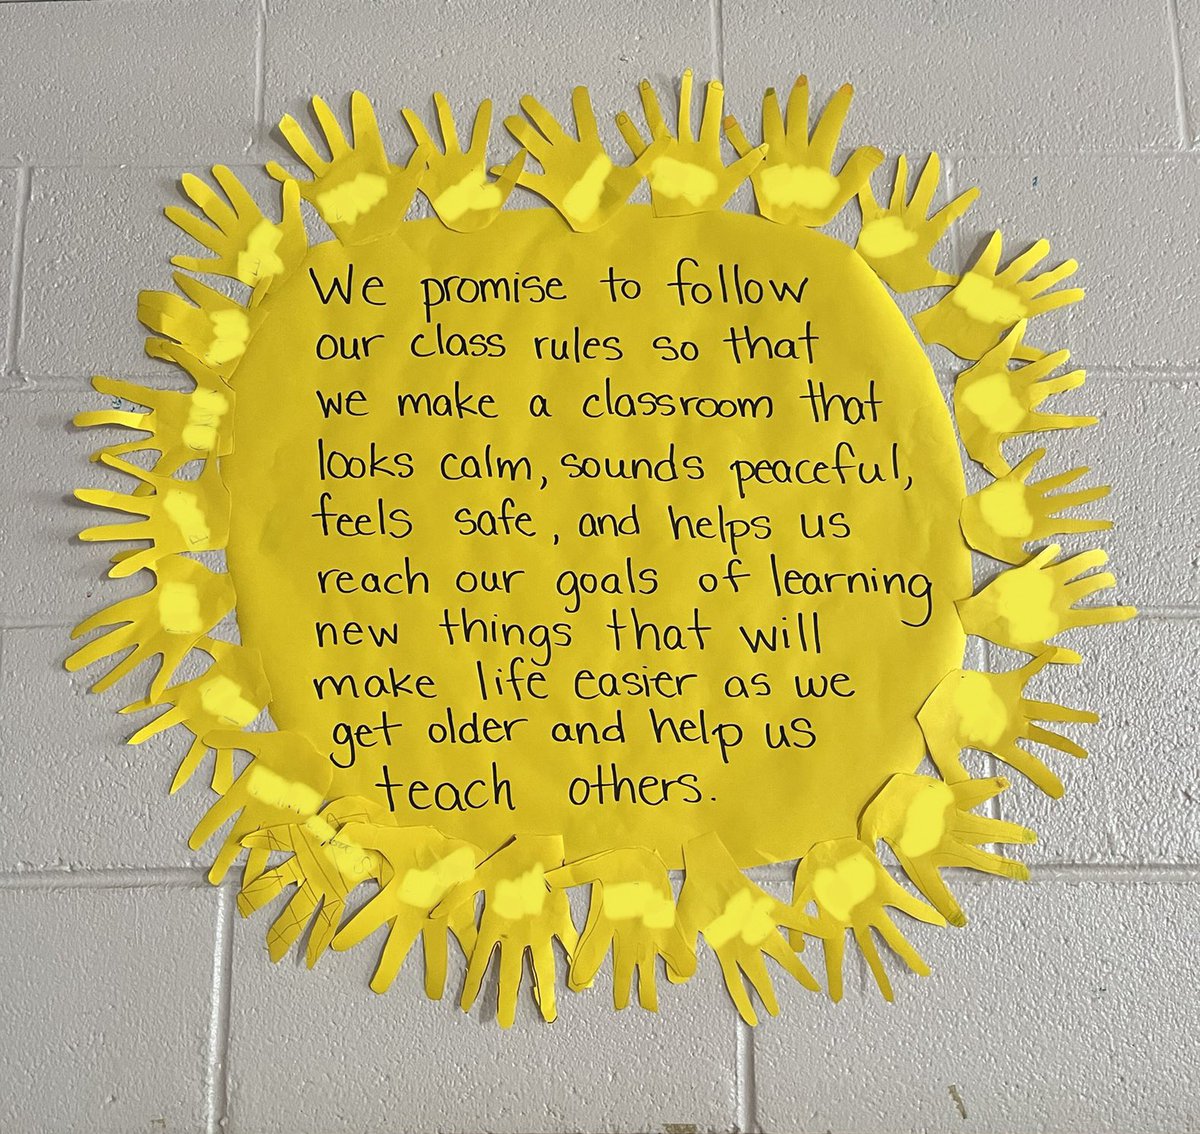 We promise to follow
our class rules so that
we make a classroom that
looks calm, sounds peaceful,
feels safe, and helps us
reach our goals of learning
new things that will
make life easier as we
get older and help us
teach others.